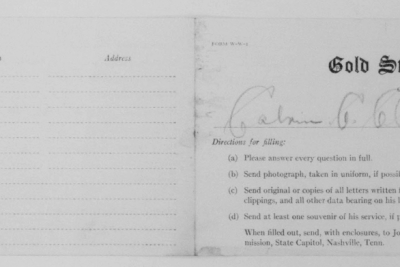 Address
Gold S
Calvin C. C
Directions for filling:
(a) Please answer every question in full.
(b) Send photograph, taken in uniform, if possi
(c) Send original or copies of all letters written
clippings, and all other data bearing on his
(d) Send at least one souvenir of his service, if p
When filled out, send, with enclosures, to Jo
mission, State Capitol, Nashville, Tenn.